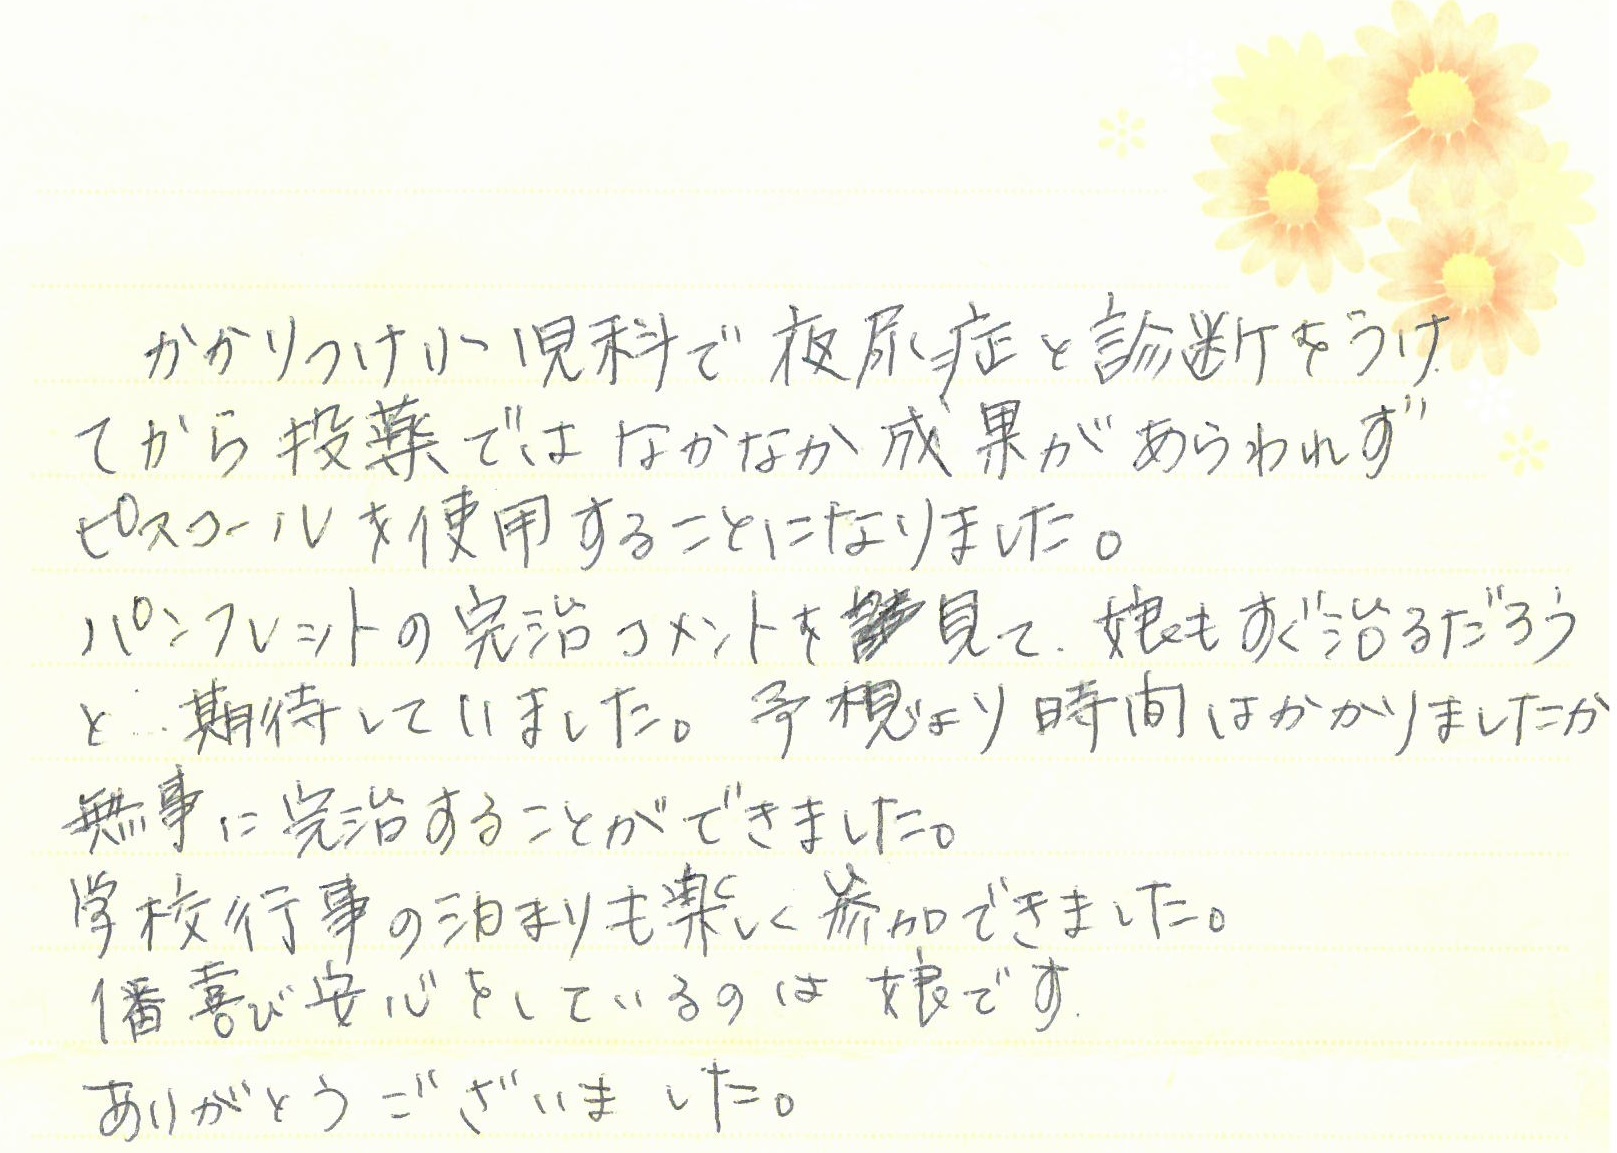 かかりつけ小児科で夜尿症と診断をうけ
てから投薬ではなかなか成果があらわれず
ピスコールを使用することになりました。
パンフレットの完治コメントを見て、娘もすぐ治るだろう
と期待していました。予想より時間はかかりましたが
無事に完治することができました。
学校行事の泊まりも楽しく参加できました。
1番喜び安心をしているのは娘です.
ありがとうございました。